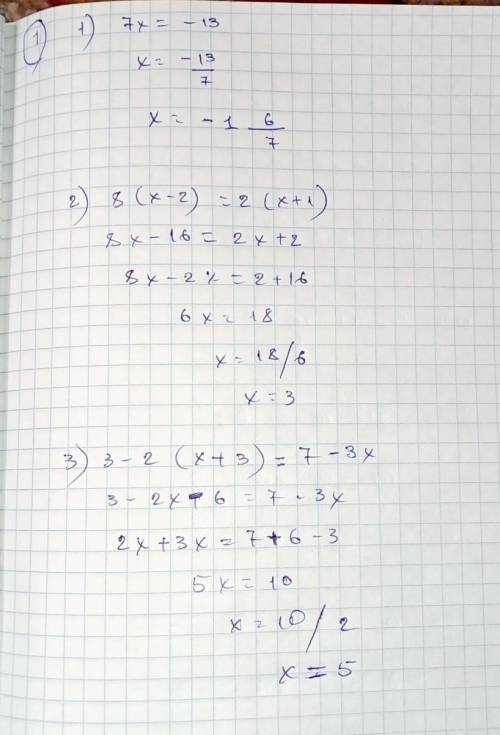 ① 1) 7x = -13
x = -13/7
x = -1 6/7
2) 8 (x-2) = 2 (x+1)
8x - 16 = 2x + 2
8x - 2x = 2 + 16
6x = 18
x = 18/6
x = 3
3) 3 - 2 (x+3) = 7 - 3x
3 - 2x - 6 = 7 - 3x
2x + 3x = 7 + 6 - 3
5x = 10
x = 10/2
x = 5